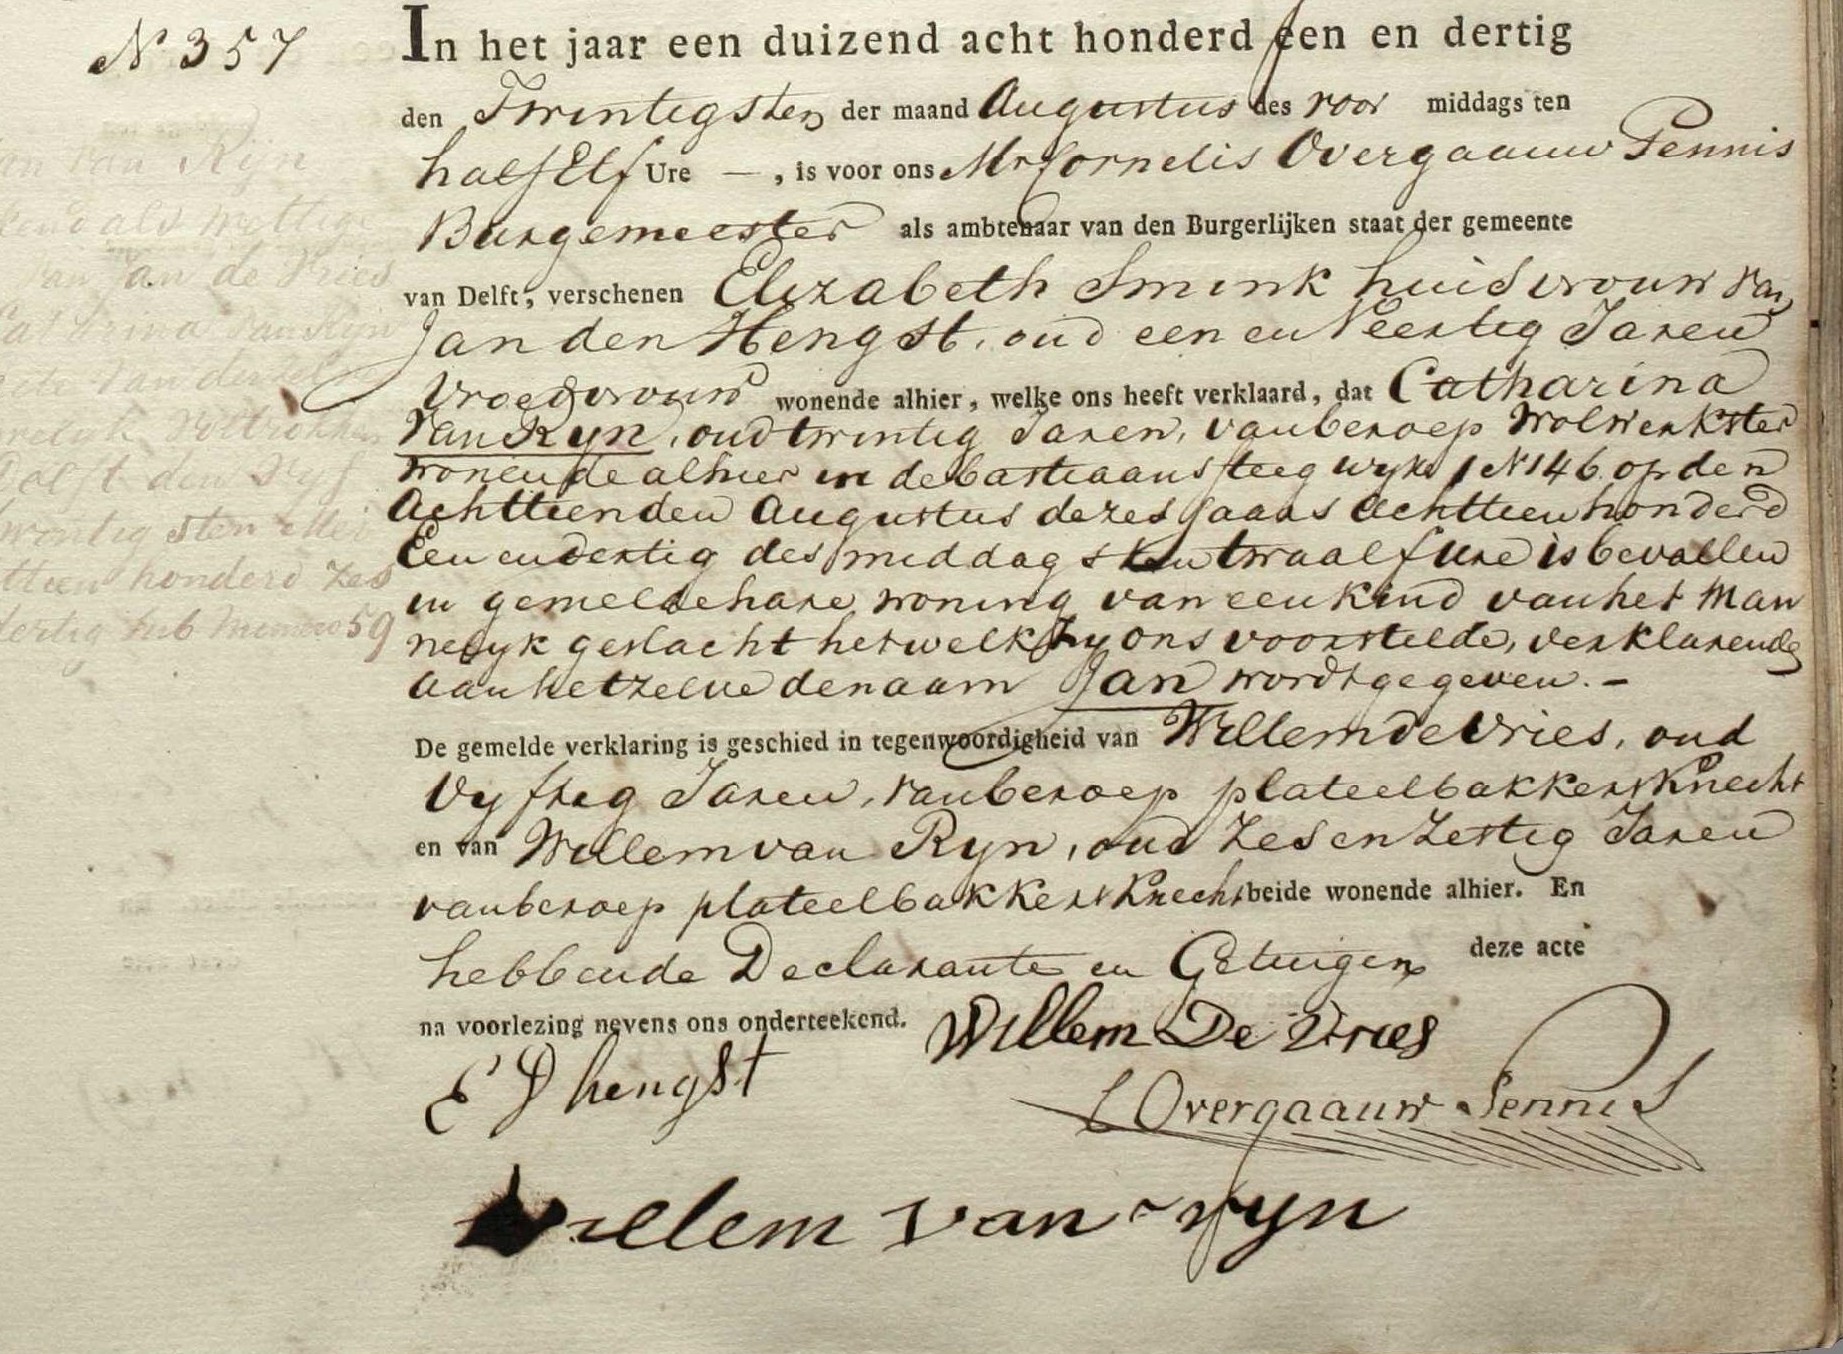 N 357
In het jaar een duizend acht honderd een en dertig
den Twintigsten der maand Augustus des voor middags ten
half Elf Ure —, is voor ons Mr Cornelis Overgaauw Pennis
Burgemeester als ambtenaar van den Burgerlijken staat der gemeente
van Delft, verschenen Elizabeth Smink huisvrouw van
Jan den Hengst, oud een en Veertig Jaren
Vroedvrouw wonende alhier, welke ons heeft verklaard, dat Catharina
van Ryn, oud twintig Jaren, van beroep Wolwerkster
wonende alhier in de bastiaansteeg wyk 1 N 146 op den
Achttienden Augustus dezes Jaars Achttienhonderd
Een en dertig des middags ten twaalf ure is bevallen
in gemelde hare woning van een kind van het Man
nelyk geslacht hetwelk Zy ons voorstelde, verklarende
aan hetzelve den naam Jan wordt gegeven. –
De gemelde verklaring is geschied in tegenwoordigheid van Willem de Vries, oud
Vyftig Jaren, van beroep plateelbakkersKnecht
en van Willem van Ryn, oud Zes en Zestig Jaren
van beroep plateelbakkersKnecht beide wonende alhier. En
hebbende Declarante en Getuigen deze acte
na voorlezing nevens ons onderteekend.
Willem De Vries
E D hengst
C Overgaauw Pennis
Willem van ryn
an van Ryn
kend als wettige
van Jan de Vries
Catharina van Ryn
van der
voltrokken
Delft den vyf
twintigsten Mei
ttien honderd zes
dertig sub Numero 59